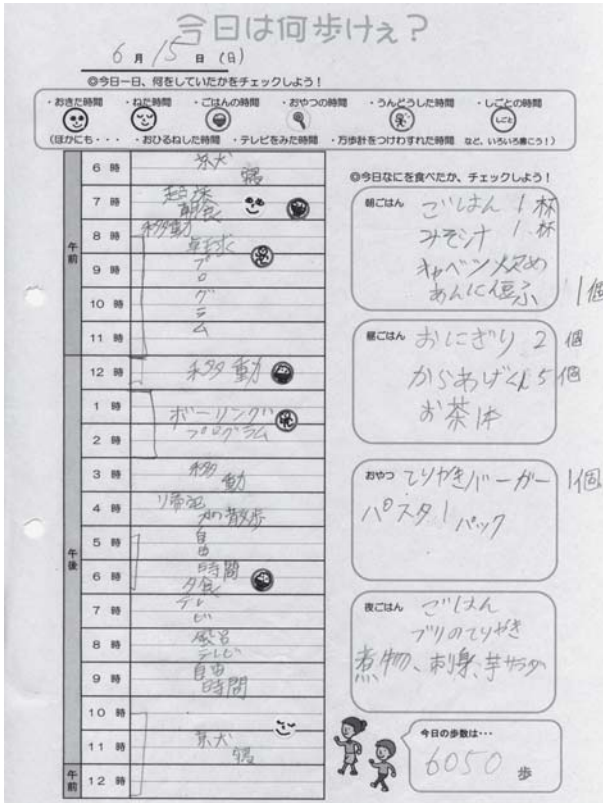 今日は何歩けぇ？
6月15日(日)
◎今日一日、何をしていたかをチェックしよう！
・おきた時間 ・ねた時間 ・ごはんの時間 ・おやつの時間 ・うんどうした時間 ・しごとの時間
しごと
(ほかにも・・・ ・おひるねした時間 ・テレビをみた時間 ・万歩計をつけわすれた時間 など、いろいろ書こう！)
午前
6時
7時 起床
朝食
8時 移動
卓球
9時 プロ
10時 グラ
11時 ム
午後
12時 移動
1時 ボーリング
2時 プログラム
3時 移動
4時 散歩
5時 自由
6時 時間
夕食
7時 テレビ
8時 風呂
テレビ
9時 自由
時間
10時
11時
午前
12時
◎今日なにを食べたか、チェックしよう！
朝ごはん ごはん 1杯
みそ汁 1杯
キャベツ炒め
あんにん豆ふ 1個
昼ごはん おにぎり 2個
からあげくん 5個
お茶
おやつ てりやきバーガー 1個
パスタ 1パック
夜ごはん ごはん
ブリのてりやき
煮物、刺身、芋サラダ
今日の歩数は・・・
6050歩